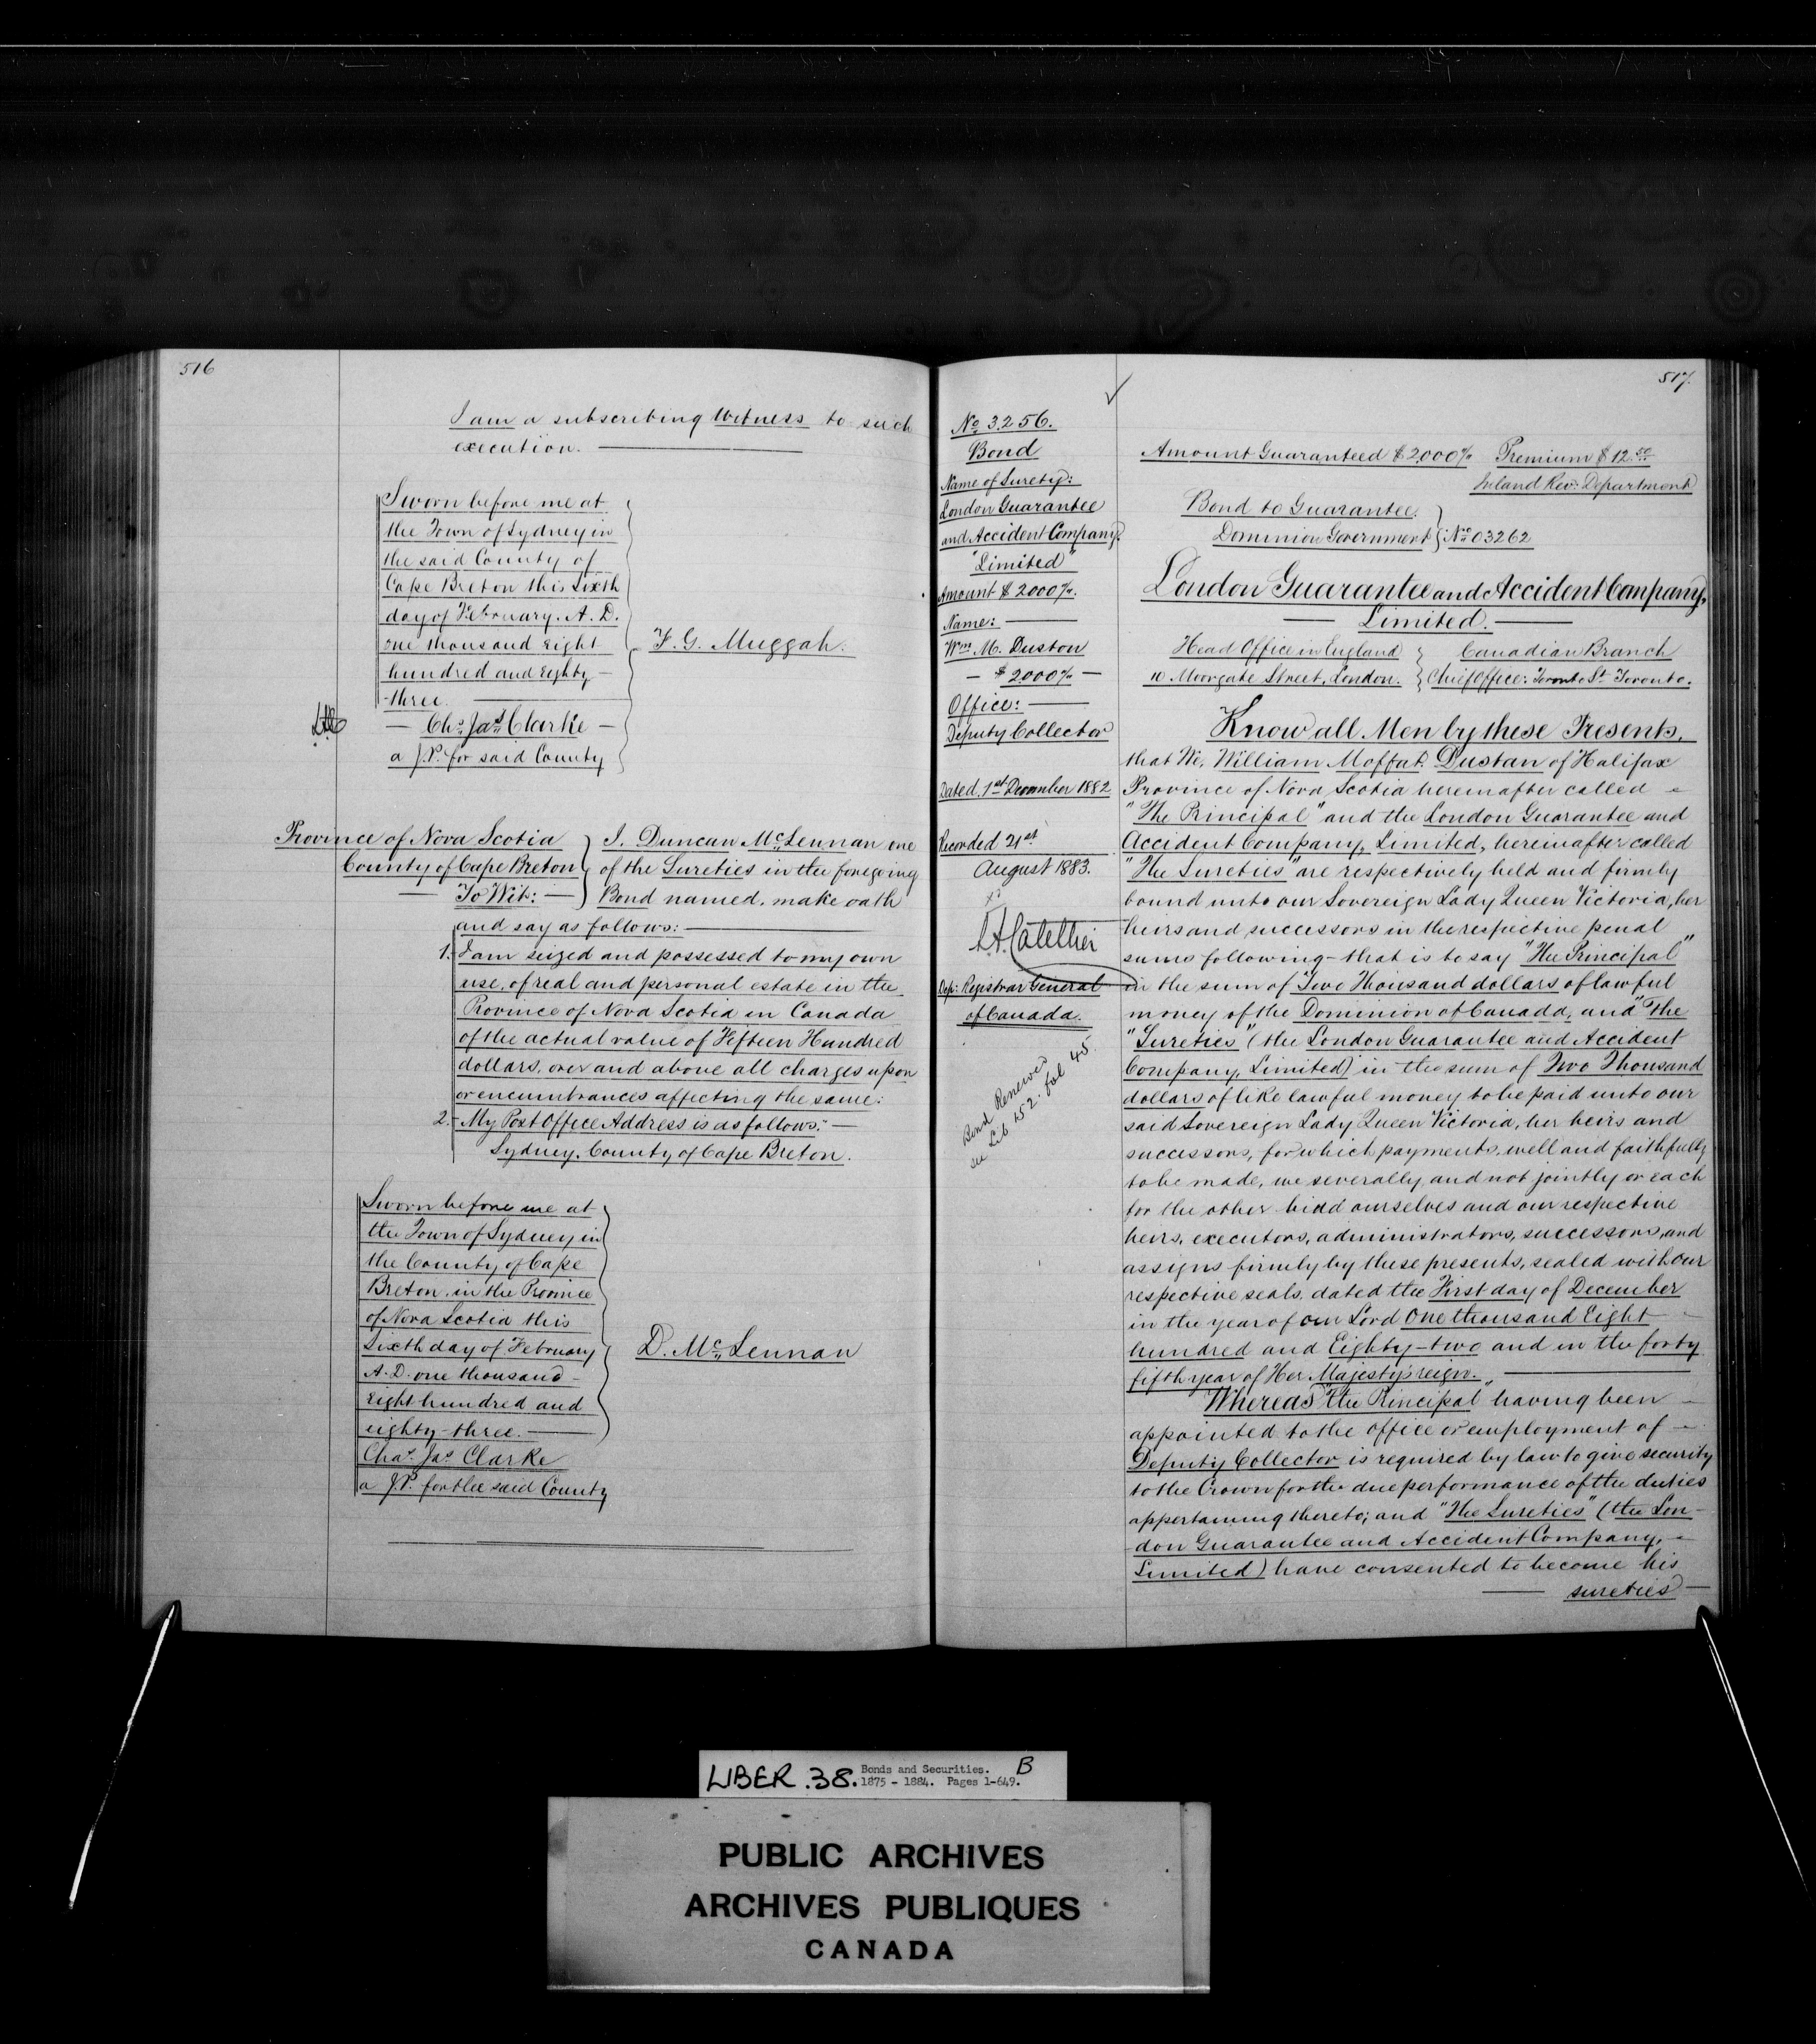 516
I am a subscribing Witness to such
execution.
Sworn before me at
the Town of Sydney in
the said County of
Cape Breton this Sixth
day of February. A. D.
one thousand Eight
hundred and Eighty
three.
F. G. Muggah.
Chs. Jas. Clarke
a J.P. for said County
Province of Nova Scotia
County of Cape Breton
To Wit:
I, Duncan McLennan one
of the Sureties in the foregoing
Bond named, make oath
and say as follows:
1. I am seized and possessed to my own
use, of real and personal estate in the
Province of Nova Scotia in Canada
of the actual value of Fifteen Hundred
dollars, over and above all charges upon
or encumbrances affecting the same:
2. My Post Office Address is as follows:
Sydney, County of Cape Breton.
Sworn before me at
the Town of Sydney in
the County of Cape
Breton, in the Province
of Nova Scotia this
Sixth day of February
A. D. one thousand
Eight hundred and
eighty-three.
D. McLennan
Chas. Jas Clarke
a J.P. for the said County
517.
No 3256.
Bond
Name of Surety:
London Guarantee
and Accident Company
"Limited"
Amount $2000/-.
Name:
Wm M. Duston
$2000/-
Office:
Deputy Collector
Dated, 1st December 1882
Recorded 21st
August 1883.
Dep: Registrar General
of Canada.
Bond Renewed
see Lib 152. fol 45.
Amount Guaranteed $2,000/- Premium $12.00
Inland Rev: Department
Bond to Guarantee.
Dominion Government } No 03262
London Guarantee and Accident Company,
Limited.
Head Office in England
10 Moorgate Street, London.
Canadian Branch
Chief Office: Toronto St. Toronto.
Know all Men by these Presents,
that We, William Moffat Dustan of Halifax
Province of Nova Scotia hereinafter called
"The Principal" and the London Guarantee and
Accident Company, Limited, hereinafter called
"The Sureties" are respectively held and firmly
bound unto our Sovereign Lady Queen Victoria, her
heirs and successors in the respective penal
sums following - that is to say "The Principal"
in the sum of Two Thousand dollars of lawful
money of the Dominion of Canada, and "The
"Sureties" (the London Guarantee and Accident
Company, Limited) in the sum of Two Thousand
dollars of like lawful money to be paid unto our
said Sovereign Lady Queen Victoria, her heirs and
successors, for which payments, well and faithfully
to be made, we severally and not jointly or each
for the other bind ourselves and our respective
heirs, executors, administrators, successors, and
assigns firmly by these presents, sealed with our
respective seals, dated the First day of December
in the year of our Lord One thousand Eight
hundred and Eighty-two and in the forty
fifth year of Her Majesty's reign.
Whereas "the Principal" having been
appointed to the office or employment of
Deputy Collector is required by law to give security
to the Crown for the due performance of the duties
appertaining thereto; and "The Sureties" (the Lon-
don Guarantee and Accident Company,
Limited) have consented to become his
sureties
LIBER .38. Bonds and Securities. B
1875 - 1884. Pages 1-649.
PUBLIC ARCHIVES
ARCHIVES PUBLIQUES
CANADA